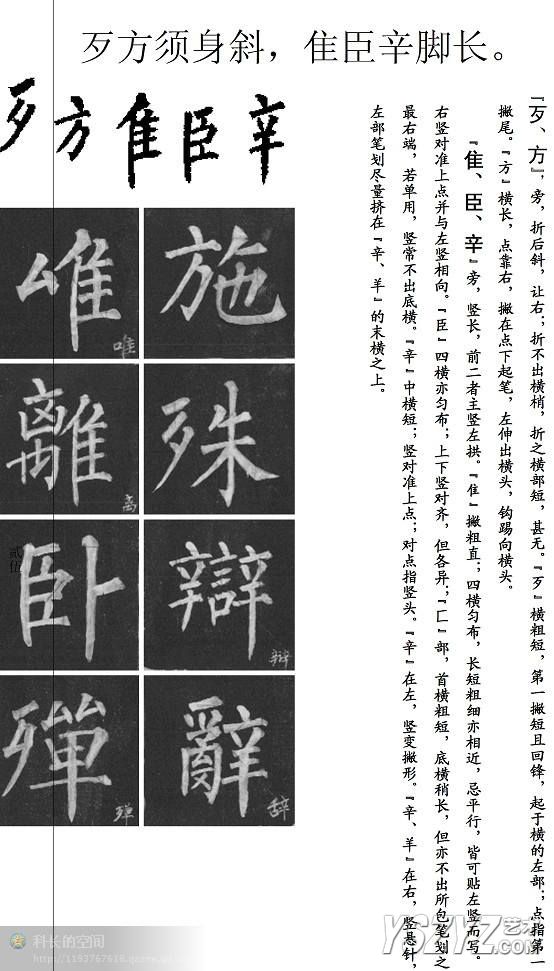 歹方须身斜，隹臣辛脚长。
『歹、方』，旁，折后斜，让右；折不出横梢，折之横部短，甚无。『歹』横粗短，第一撇短且回锋，起于横的左部；点指第一
撇尾。『方』横长，点靠右，撇在点下起笔，左伸出横头，钩踢向横头。
『隹、臣、辛』旁，竖长，前二者主竖左拱。『隹』撇粗直；四横匀布，长短粗细亦相近，忌平行，皆可贴左竖而写。
右竖对准上点并与左竖相向。『臣』四横亦匀布；上下竖对齐，但各异；『匚』部，首横粗短，底横稍长，但亦不出所包笔划之
最右端，若单用，竖常不出底横。『辛』中横短；竖对准上点；对点指竖头。『辛』在左，竖变撇形。『辛、羊』在右，竖悬针，
左部笔划尽量挤在『辛、羊』的末横之上。
歹方隹臣辛
施
唯
唯
殊
離
离
辯
辩
卧
辭
辞
殫
殚
贰伍
科长的空间
YSZYZ艺术